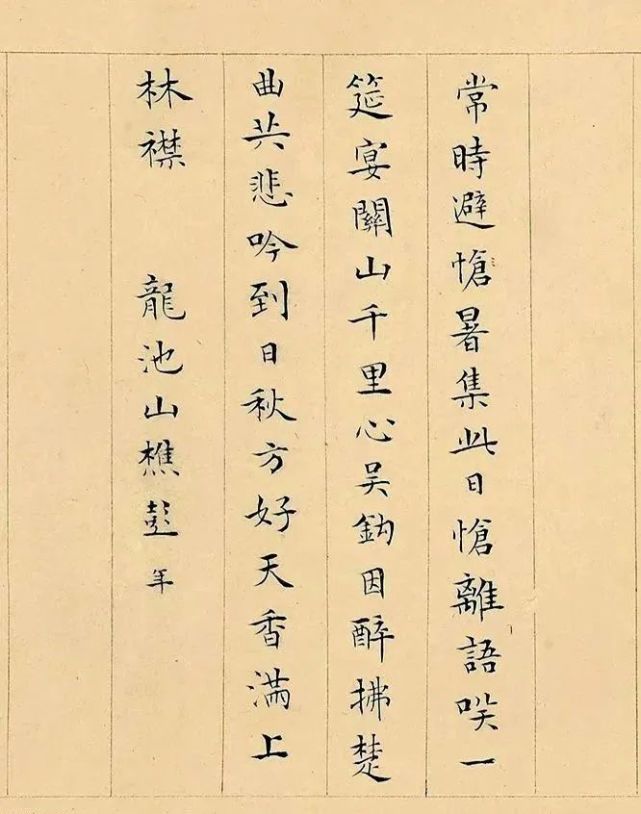 常時避愴暑集此日愴離語咲一
筵宴關山千里心吳鉤因醉拂楚
曲共悲吟到日秋方好天香滿上
林襟　龍池山樵彭年